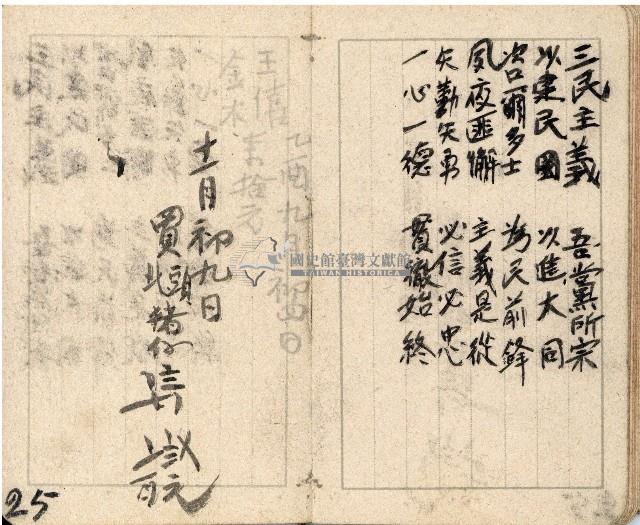 三民主義 吾黨所宗
以建民國 以進大同
咨爾多士 為民前鋒
夙夜匪懈 主義是從
矢勤矢勇 必信必忠
一心一德 貫徹始終
乙酉九月初四日
十一月初九日
買北頭豬仔
25
國史館臺灣文獻館
TAIWAN HISTORICA